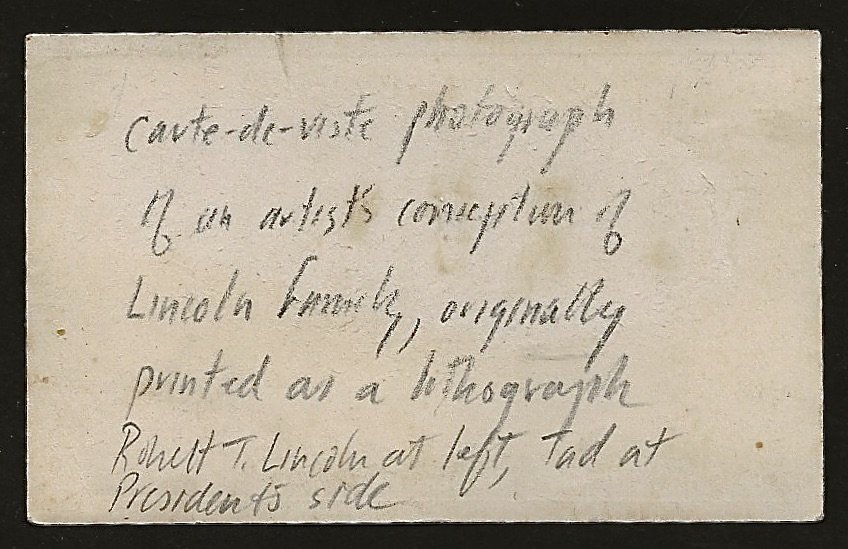 Carte-de-viste photograph
of an artist's conception of
Lincoln Family, originally
printed as a lithograph
Robert T. Lincoln at left, Tad at
President's side